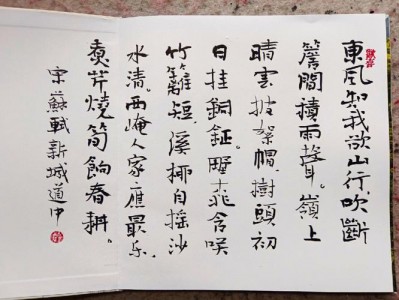 東風知我欲山行，吹斷
簷間積雨聲。嶺上
晴雲披絮帽，樹頭初
日挂銅鉦。野桃含咲
竹籬短，溪柳自搖沙
水清。西崦人家應最乐，
煑芹燒筍餉春耕。
宋蘇軾新城道中